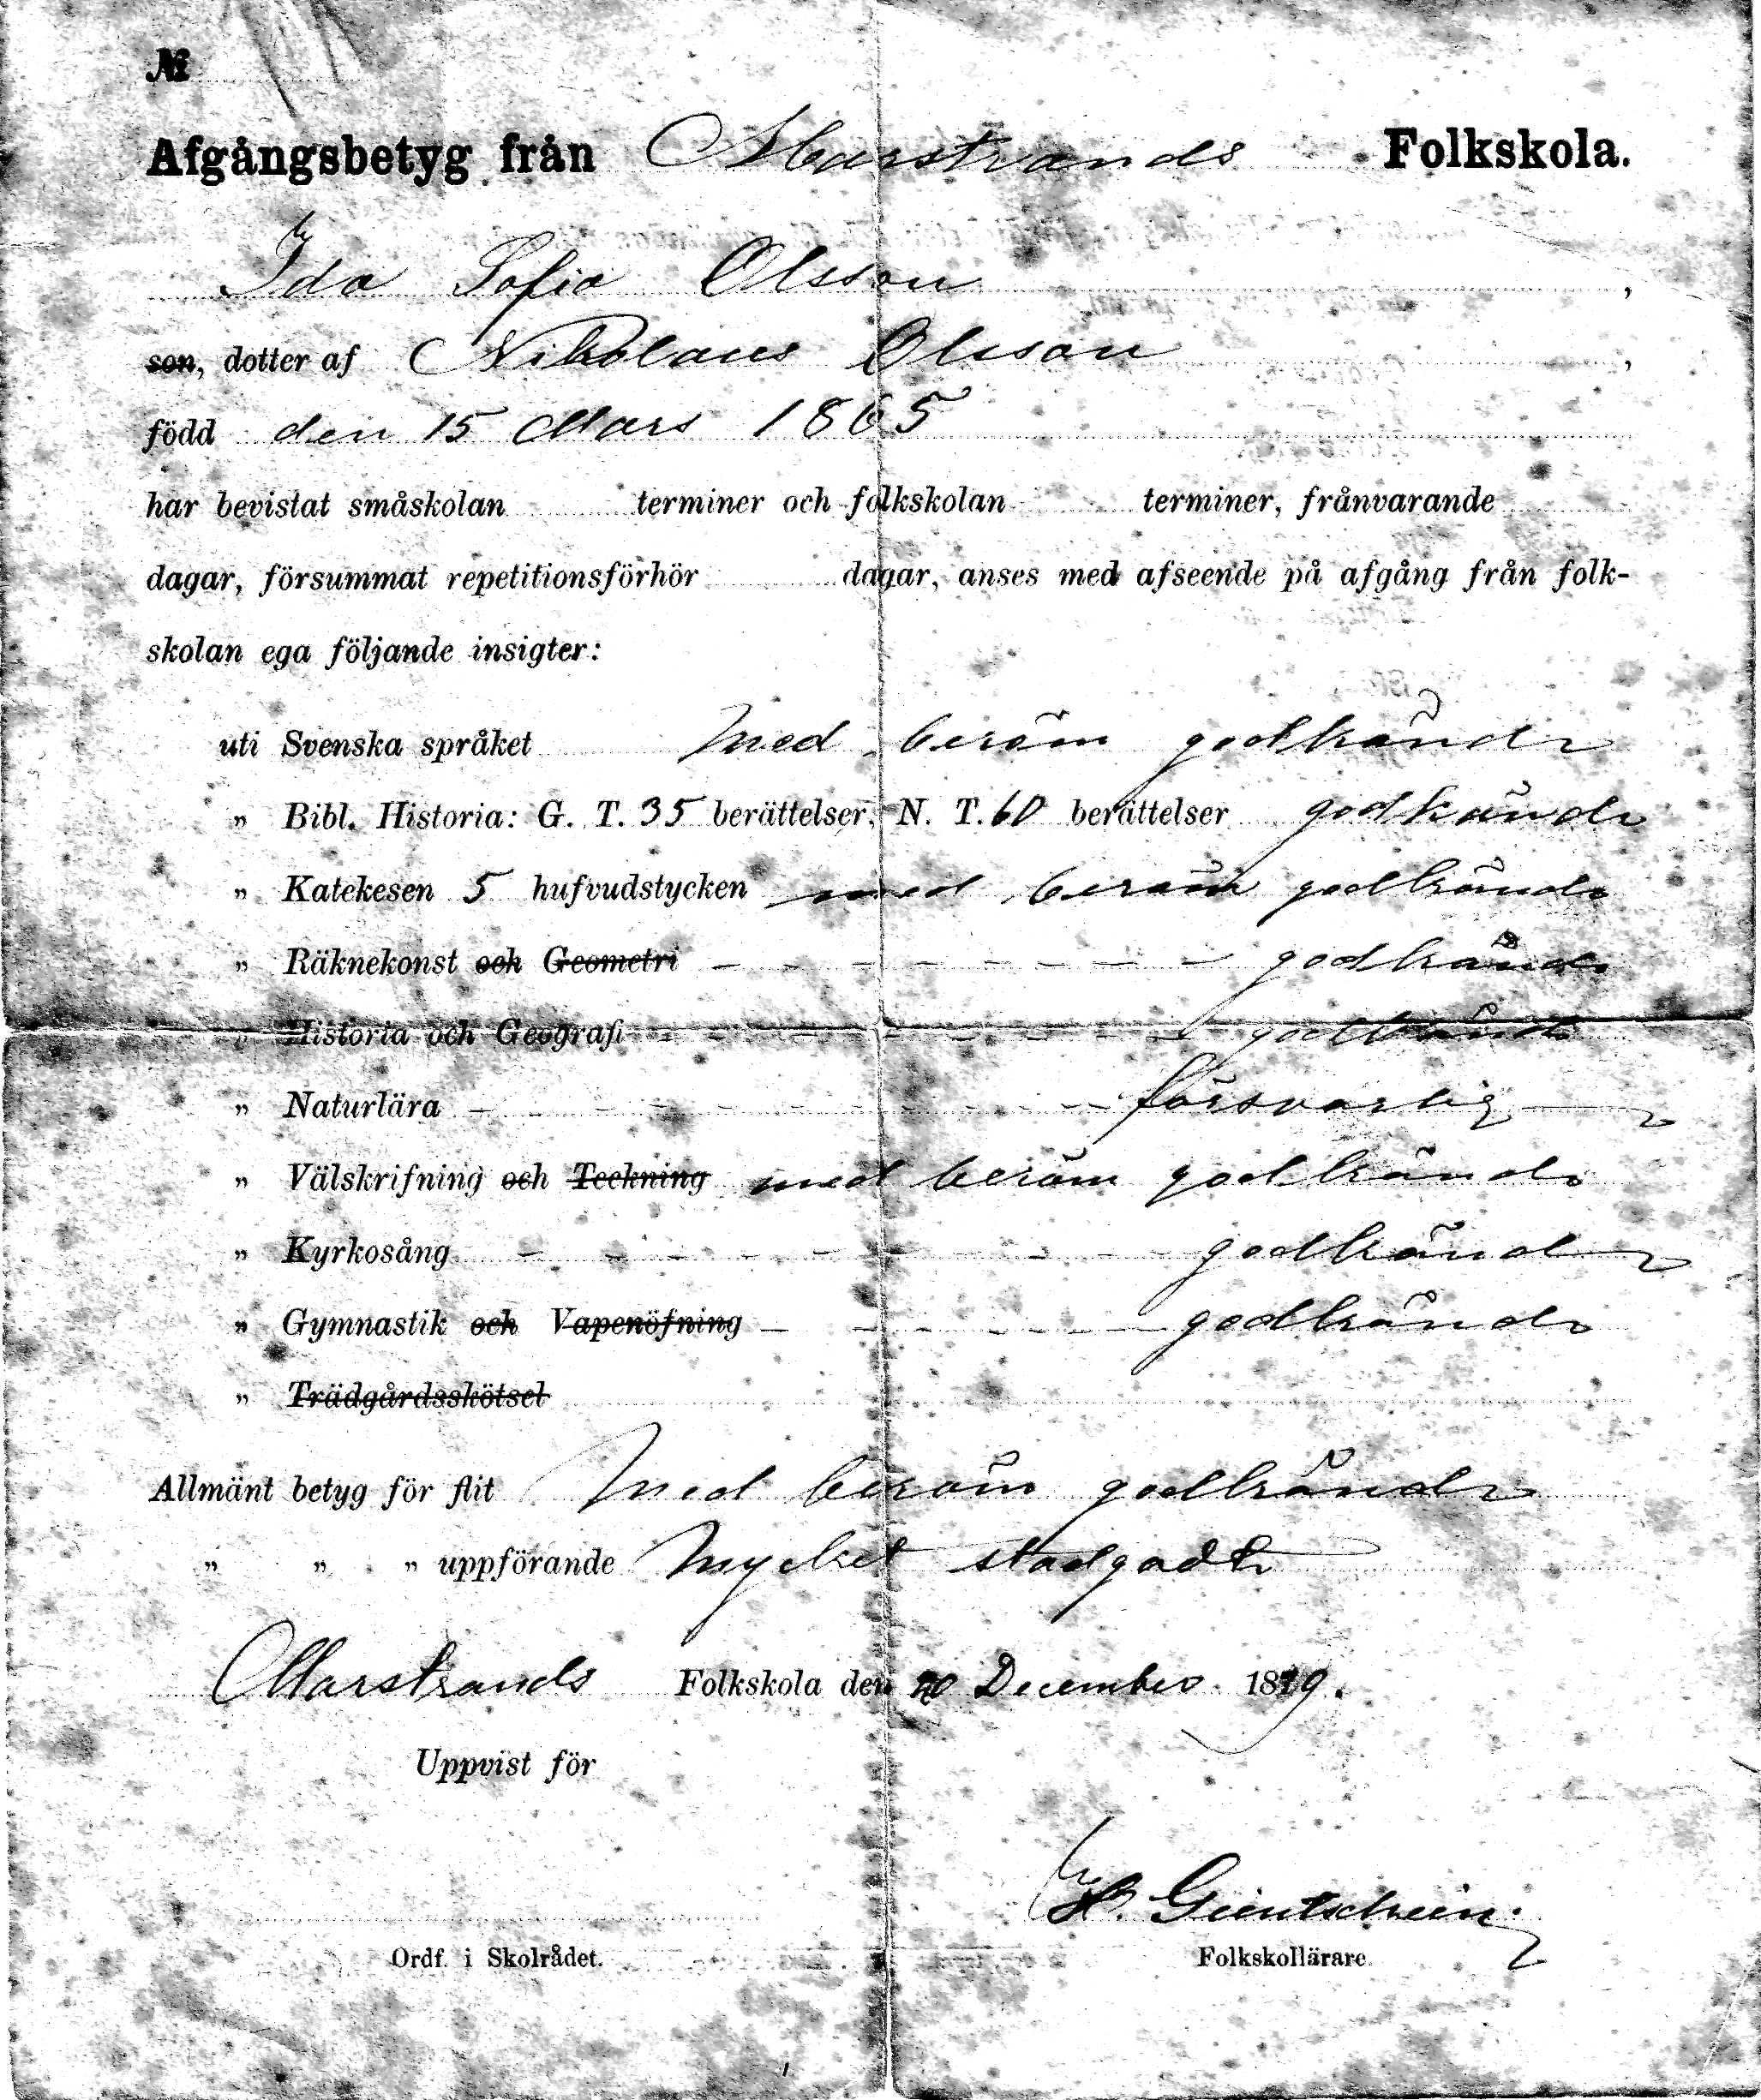 №
Afgångsbetyg från Marstrands Folkskola.
Ida Sofia Olsson,
son, dotter af Nikolaus Olsson,
född den 15 Mars 1865
har bevistat småskolan terminer och folkskolan terminer, frånvarande
dagar, försummat repetitionsförhör dagar, anses med afseende på afgång från folk-
skolan ega följande insigter:
uti Svenska språket Med beröm godkänd
„ Bibl. Historia: G. T. 35 berättelser, N. T. 60 berättelser godkänd
„ Katekesen 5 hufvudstycken med beröm godkänd
„ Räknekonst och Geometri – godkänd
„ Historia och Geografi – godkänd
„ Naturlära – försvarlig
„ Välskrifning och Teckning med beröm godkänd
„ Kyrkosång – godkänd
„ Gymnastik och Vapenöfning – godkänd
„ Trädgårdsskötsel
Allmänt betyg för flit Med beröm godkänd
„ „ „ uppförande Mycket stadgadt
Marstrands Folkskola den 20 December 1879.
Uppvist för
H.
Ordf. i Skolrådet. Folkskollärare